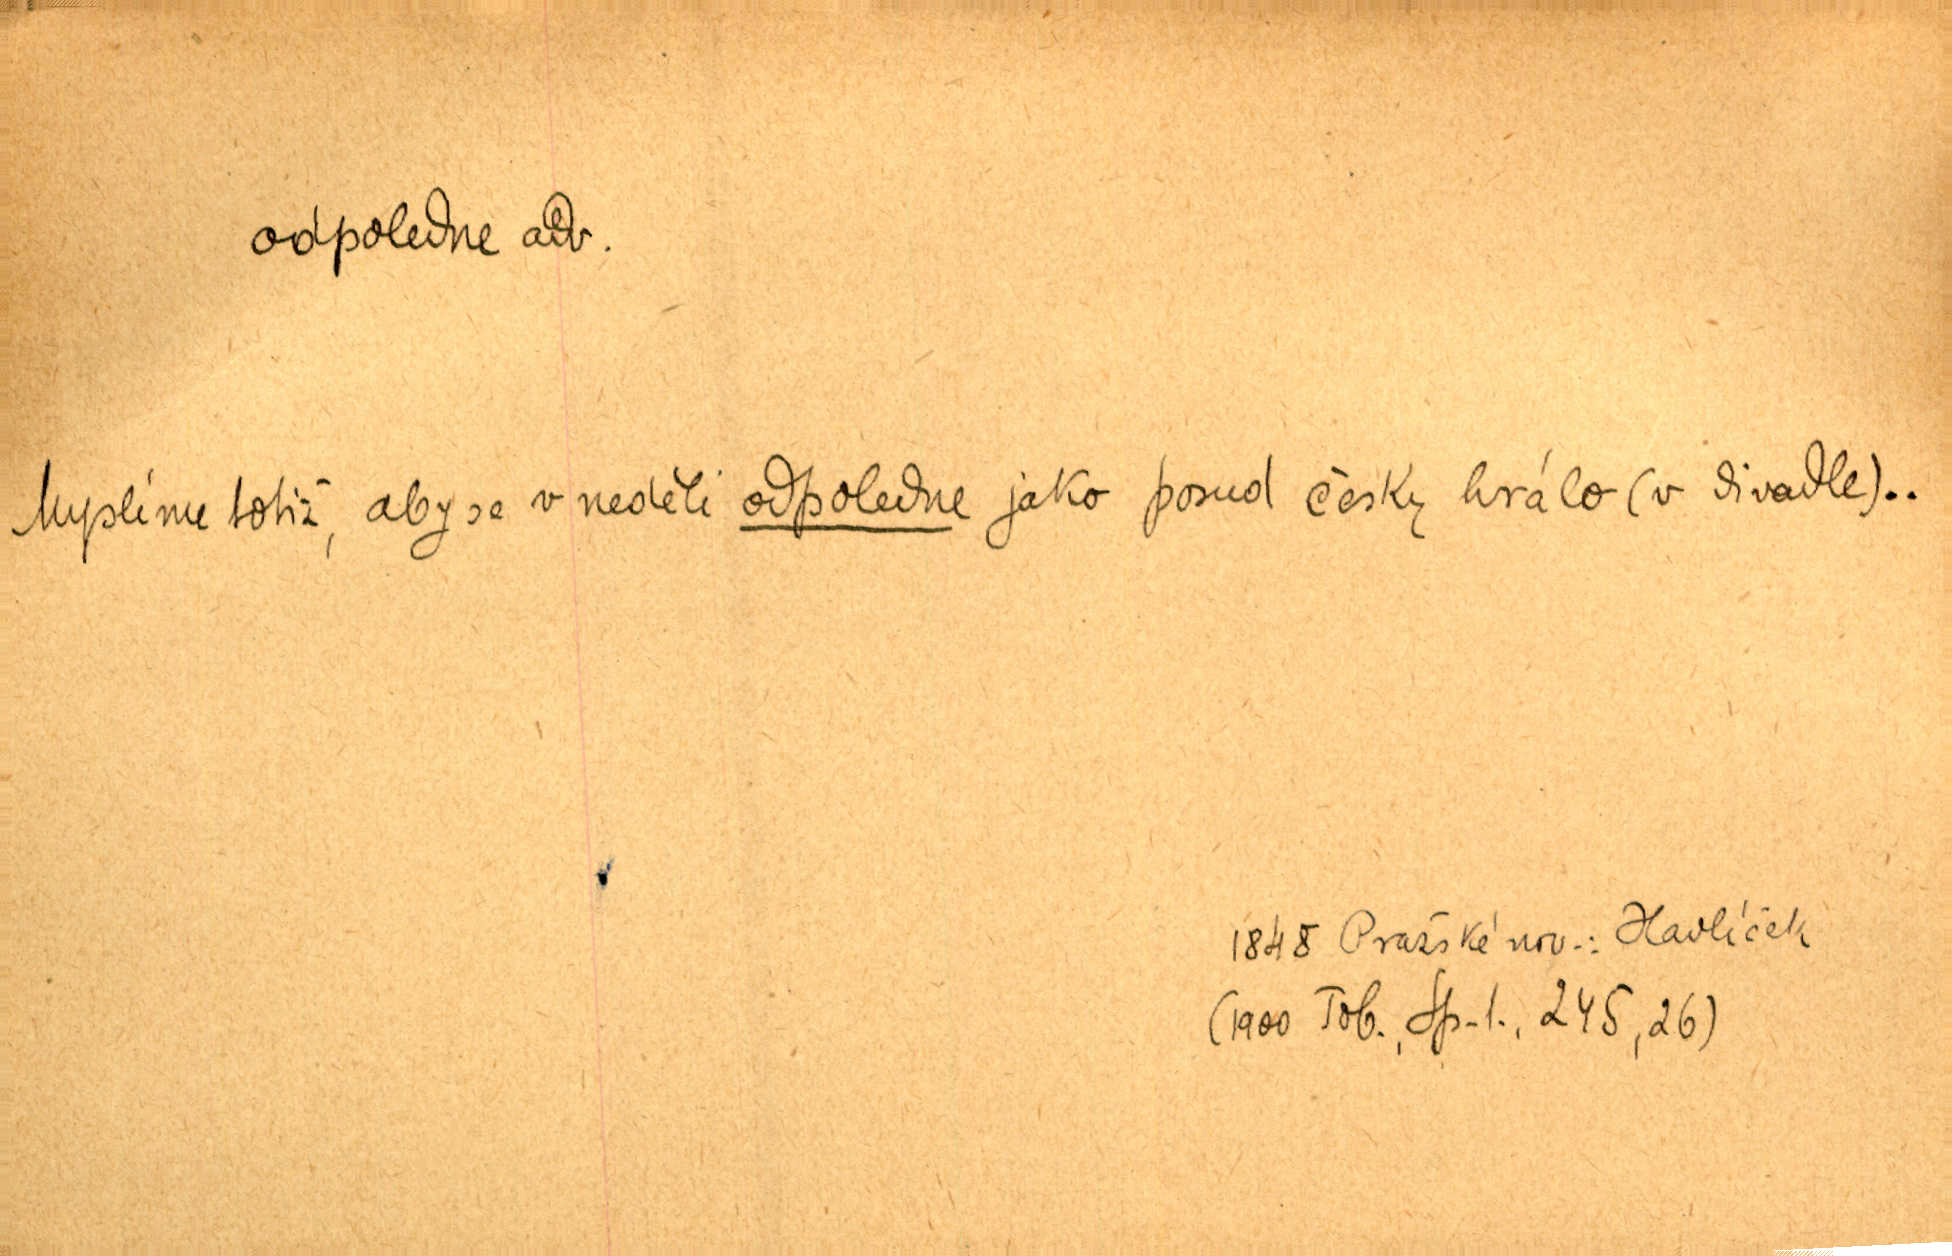 odpoledne adv.
Myslíme totiž, aby se v neděli odpoledne jako posud česky hrálo (v divadle)..
1848 Pražské nov.: Havlíček
(1900 Tob., Sp. 1., 245, 26)